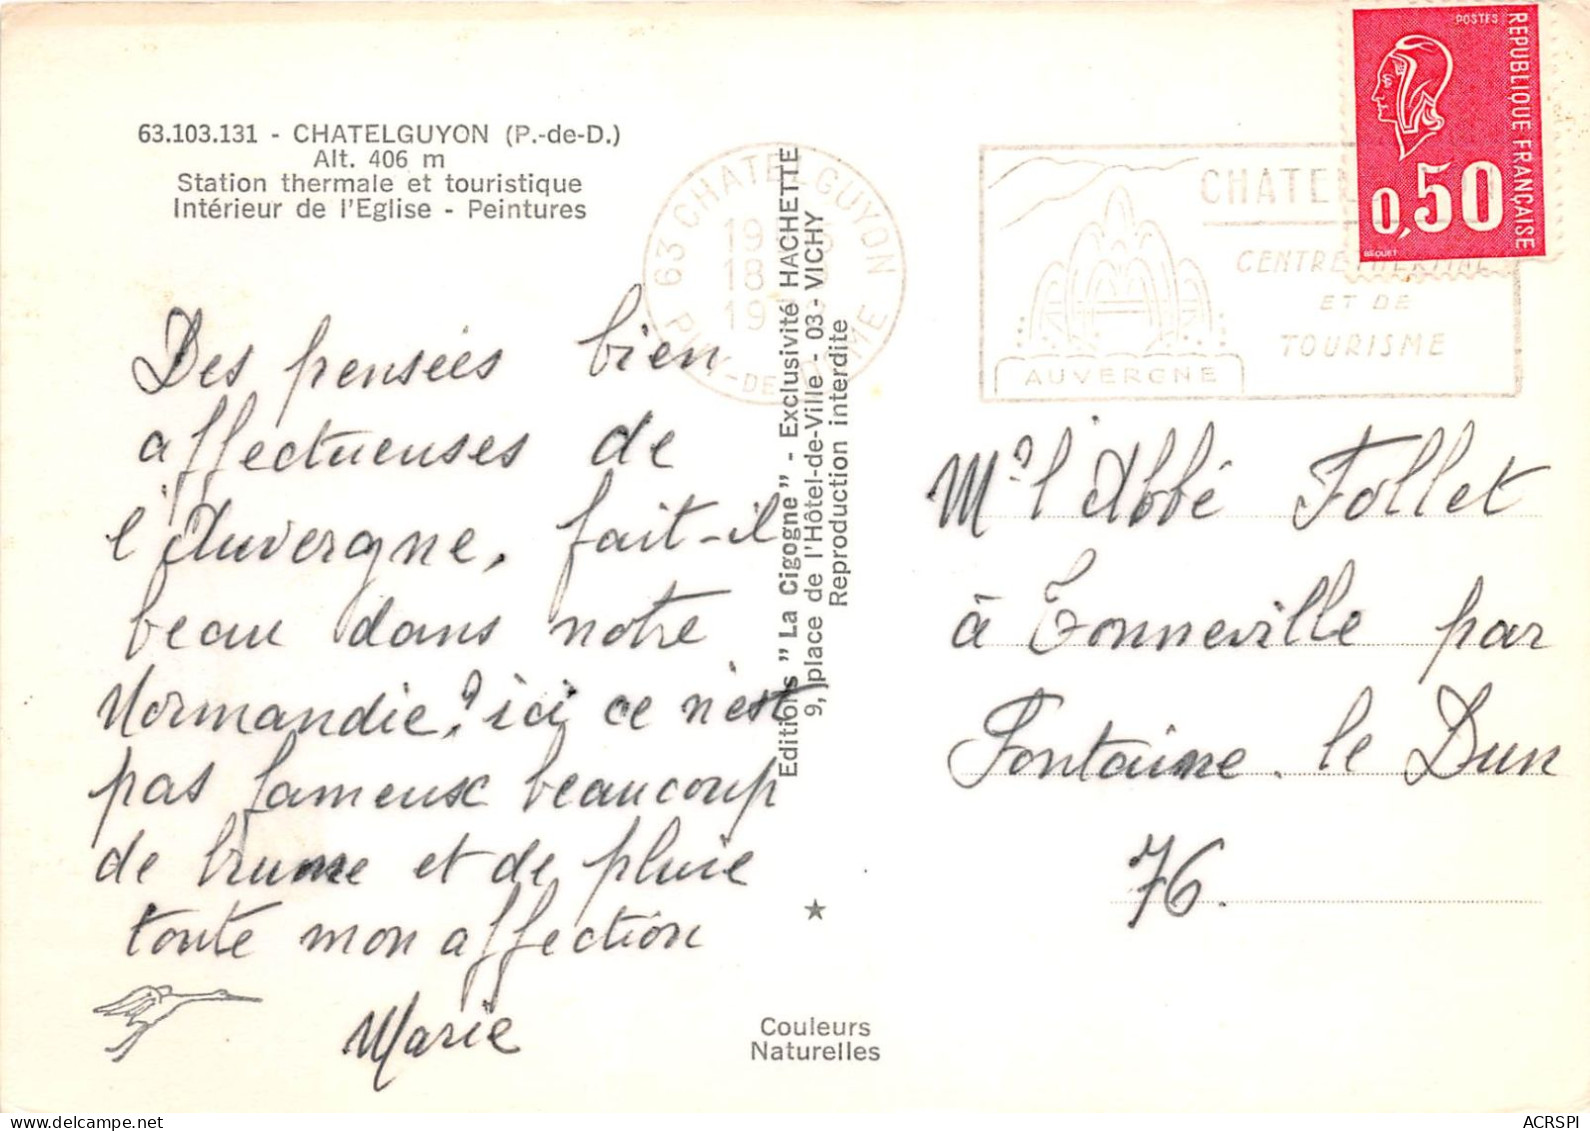 63.103.131 - CHATELGUYON (P.-de-D.)
Alt. 406 m
Station thermale et touristique
Intérieur de l'Eglise - Peintures
Des pensées bien
affectueuses de
l'Auvergne, fait-il
beau dans notre
Normandie? ici ce n'est
pas fameux beaucoup
de brume et de pluie
toute mon affection
Marie
Editions "La Cigogne" - Exclusivité HACHETTE
9, place de l'Hôtel-de-Ville - 03 - VICHY
Reproduction interdite
Couleurs
Naturelles
63 CHATELGUYON
18
PUY-DE-DOME
CHATEL
CENTRE THERMAL
ET DE
TOURISME
AUVERGNE
POSTES
REPUBLIQUE FRANÇAISE
0,50
BEQUET
Mr l'Abbé Follet
à Tonneville par
Fontaine.le Dun
76.
delcampe.net
ACRSPI